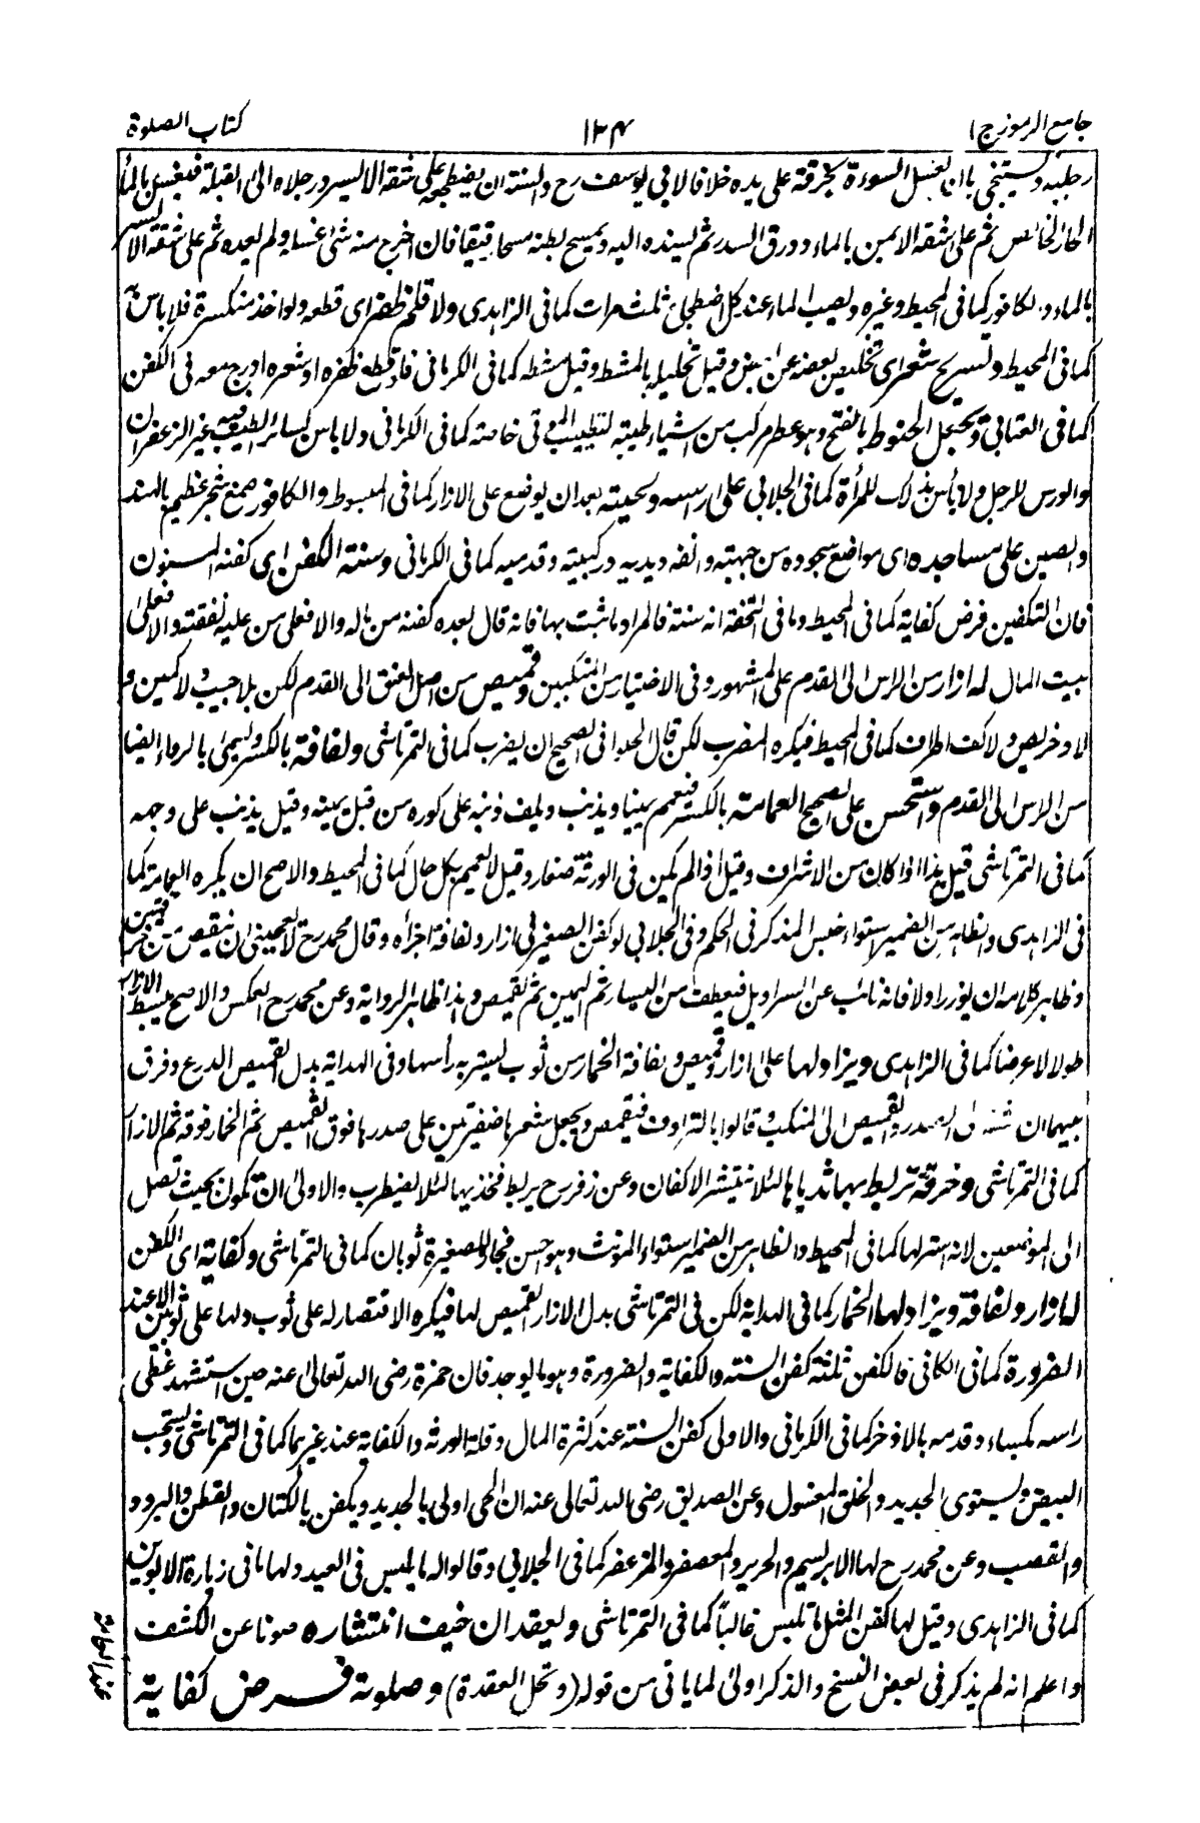 جامع الرموز ج ١
١٣٤
كتاب الصلوة
رجليه ويستنجى بان يغسل السوءة بخرقة على يده خلافا لابى يوسف رح والسنة ان يضطجعه على شقه الايسر ورجلاه الى القبلة فيغسل بالماء
الحار الخالص ثم على شقه الايمن بالماء وورق السدر ثم يسنده اليه ويمسح بطنه مسحا رقيقا فان اخرج منه شئ غسله ولم يعده ثم على شقه الايسر
بالماء والكافور كما فى المحيط وغيره ويصب الماء عند كل اضطجاع ثلث مرات كما فى الزاهدى ولا قلم ظفر اى قطعه ولو اخذ منكسرة فلا باس به
كما فى المحيط وتسريح شعر اى تخليص بعضه عن بعض وقيل تخليله بالمشط وقيل مشطه كما فى الكرمانى فاذا قطع ظفره او شعره ادرج معه فى الكفن
كما فى العتابى ويجعل الحنوط بالفتح وهو عطر مركب من اشياء طيبة لتطييب الموتى خاصة كما فى الكرمانى ولا باس بسائر الطيب غير الزعفران
والورس للرجل ولا بأس بذلك للمرأة كما فى الجلابى على راسه ولحيته بعد ان يوضع على الازار كما فى المبسوط والكافور صمغ شجر عظيم بالهند
والصين على مساجده اى مواضع سجوده من جبهته وانفه ويديه وركبتيه وقدميه كما فى الكرمانى وسنة الكفن اى كفنه المسنون
فان التكفين فرض كفاية كما فى المحيط وما فى التحفة انه سنة فالمراد ما ثبت بها فانه قال بعده كفنه من ماله والا فعلى من عليه نفقته والا فعلى
بيت المال له ازار من الراس الى القدم على المشهور وفى الاختيار من المنكبين وقميص من اصل العنق الى القدم لكن بلا جيب ولا كمين و
لا دخريص ولا كف اطراف كما فى المحيط فيكره المضرب لكن قال الحلوانى الصحيح ان يضرب كما فى التمرتاشى ولفافة بالكسر وتسمى بالرداء ايضا
من الراس الى القدم واستحسن على الصحيح العمامة بالكسر فيعمم يمينا ويذنب ويلف ذنبه على كوره من قبل يمينه وقيل يذنب على وجهه
كما فى التمرتاشى قيل هذا اذا كان من الاشراف وقيل اذا لم يكن فى الورثة صغار وقيل لا يعمم بكل حال كما فى المحيط والاصح ان يكره العمامة كما
فى الزاهدى والظاهر من الضمير استواء جنس المذكر فى الحكم وفى الجلابى لو كفن الصغير فى ازار ولفافة اجزأه وقال محمد رح لا يعجبنى ان ينقص من قميصين
وظاهر كلامه ان يؤزر اولا فانه نائب عن السراويل فيعطف من اليسار ثم اليمين ثم القميص وهذا ظاهر الرواية وعن محمد رح العكس والاصح يبسط الازار
طولا لا عرضا كما فى الزاهدى ويزاد لها على ازار وقميص ولفافة الخمار من ثوب ليستر به رأسها وفى الهداية بدل القميص الدرع وفرق
بينهما ان شقه الى الصدر والقميص الى المنكب وقالوا بالترادف فيقمص ويجعل شعرها ضفيرتين على صدرها فوق القميص ثم الخمار فوقه ثم الازار
كما فى التمرتاشى وخرقة تربط بها ثدياها لئلا ينتشر الاكفان وعن زفر رح يربط فخذيها لئلا يضطرب والاولى ان تكون بحيث تصل
الى الموضعين لانه استر لها كما فى المحيط والظاهر من الضمير استواء المؤنث وهو حسن فجاز للصغيرة ثوبان كما فى التمرتاشى وكفايته اى الكفن
له ازار ولفافة ويزاد لها الخمار كما فى الهداية لكن فى التمرتاشى بدل الازار القميص لها فيكره الاقتصار له على ثوب ولها على ثوبين الا عند
الضرورة كما فى الكافى فالكفن ثلثة كفن السنة والكفاية والضرورة وهو ما يوجد فان حمزة رضى الله تعالى عنه حين استشهد غطى
راسه بكساء وقدمه بالاذخر كما فى الكرمانى والاولى كفن السنة عند كثرة المال وقلة الورثة والكفاية عند غيرهما كما فى التمرتاشى ويستحب
البيض ويستوى الجديد والخلق المغسول وعن الصديق رضى الله تعالى عنه ان الحى اولى بالجديد ويكفن بالكتان والقطن والبرود
والقصب وعن محمد رح لها الابريسم والحرير والمعصفر والمزعفر كما فى الجلابى وقالوا له ما يلبس فى العيد ولها ما فى زيارة الابوين
كما فى الزاهدى وقيل لها كفن المثل ما تلبس غالباً كما فى التمرتاشى ويعقد ان خيف انتشاره صونا عن الكشف
واعلم انه لم يذكر فى بعض النسخ والذكر اولى لما ياتى من قوله (وتحل العقدة) وصلوته فرض كفاية